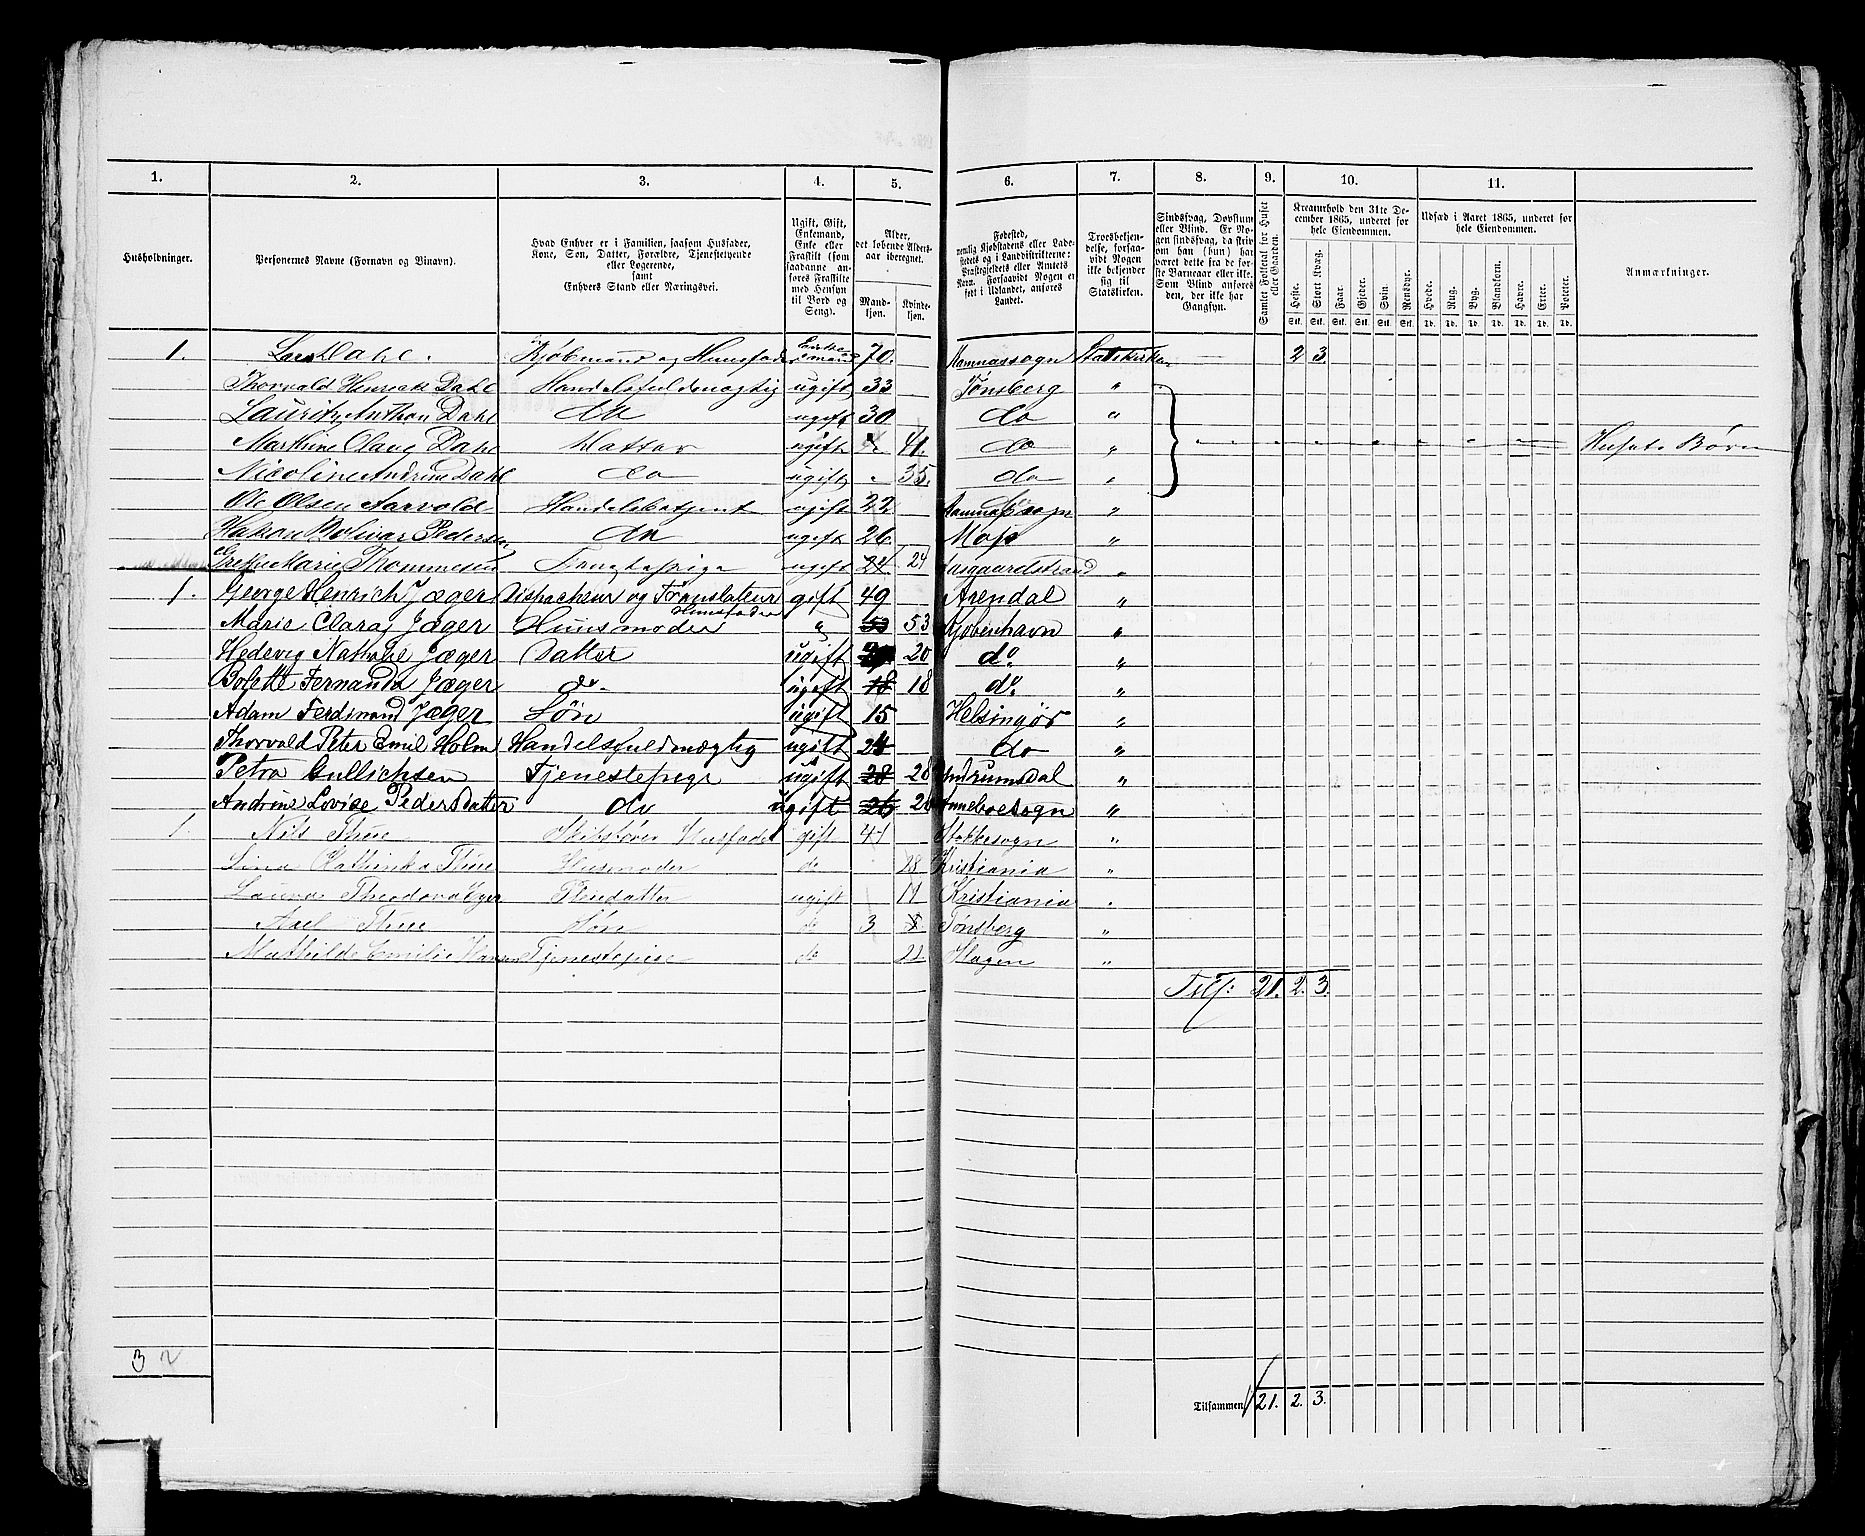 1. 2. 3. 4. 5. 6. 7. 8. 9. 10. 11.
Husholdninger.
Personernes Navne (Fornavn og Binavn).
Hvad Enhver er i Familien, saasom Husfader, Kone, Søn, Datter, Forældre, Tjenestetyende eller Logerende, samt Enhvers Stand eller Næringsvei.
Ugift, Gift, Enkemand, Enke eller Fraskilt (som saadanne anføres Fraskilte med Hensyn til Bord og Seng).
Alder, det løbende Aldersaar iberegnet.
Mandkjøn. Kvindekjøn.
Fødested, nemlig Kjøbstadens eller Ladestedets og i Landdistrikterne: Præstegjeldets eller Amtets Navn. Forsaavidt Nogen er født i Udlandet, anføres Landet.
Troesbekjendelse, forsaavidt Nogen ikke bekjender sig til Statskirken.
Sindssvag, Døvstum eller Blind. Er Nogen sindssvag, da skriv om han (hun) har været dette fra de første Barneaar eller ikke. Som Blind anføres den, der ikke har Gangsyn.
Samlet Folketal for Huset eller Gaarden.
Kreaturhold den 31te December 1865, underet for hele Eiendommen.
Heste. Stort Kvæg. Faar. Gjeder. Svin. Rensdyr.
Udsæd i Aaret 1865, underet for hele Eiendommen.
Hvede. Rug. Byg. Blandkorn. Havre. Erter. Poteter.
Anmærkninger.
1. Lars Dahl. Kjøbmand og Huusfader Enkemand 70. Ramnæssogn Statskirken 2 3
Thorvald Henrich Dahl Handelsfuldmægtig ugift 33 Tønsberg "
Lauritz Anthon Dahl do ugift 30 do "
Marthine Olava Dahl Datter ugift 41. do " Husets Børn
Nicoline Andrine Dahl do ugift 35. do "
Ole Olsen Aarvold Handelsbetjent ugift 22. Ramnæssogn "
Hakon Bolivar Pedersen do ugift 26 Moss "
Grethe Marie Thommesen Tjenestepige ugift 24 24 Aasgaardstrand "
1. George Henrich Jæger Dispacheur og Translateur Huusfader gift 49 Arendal "
Marie Clara Jæger Huusmoder " 53 53 Kjøbenhavn "
Hedevig Nathalie Jæger Datter ugift 20 do. "
Bolette Fernanda Jæger do. ugift 18 18 do. "
Adam Ferdinand Jæger Søn ugift 15 Helsingør "
Thorvald Peter Emil Holm Handelsfuldmægtig ugift 24 do "
Petra Gullichsen Tjenestepige ugift 28 28 "
Andrine Lovise Pedersdatter do ugift 26 "
1. Nils Thue Husfader gift 41 Stokkesogn "
Lina Cathinka Thue Husmoder do 28 Kristiania "
Laura Theodora Pleiedatter ugift Kristiania "
Axel Thue Søn do 3 Tønsberg "
Mathilde Emilie Hansen Tjenestepige do Slagen "
Tils: 21. 2. 3.
3
Tilsammen 21. 2. 3.